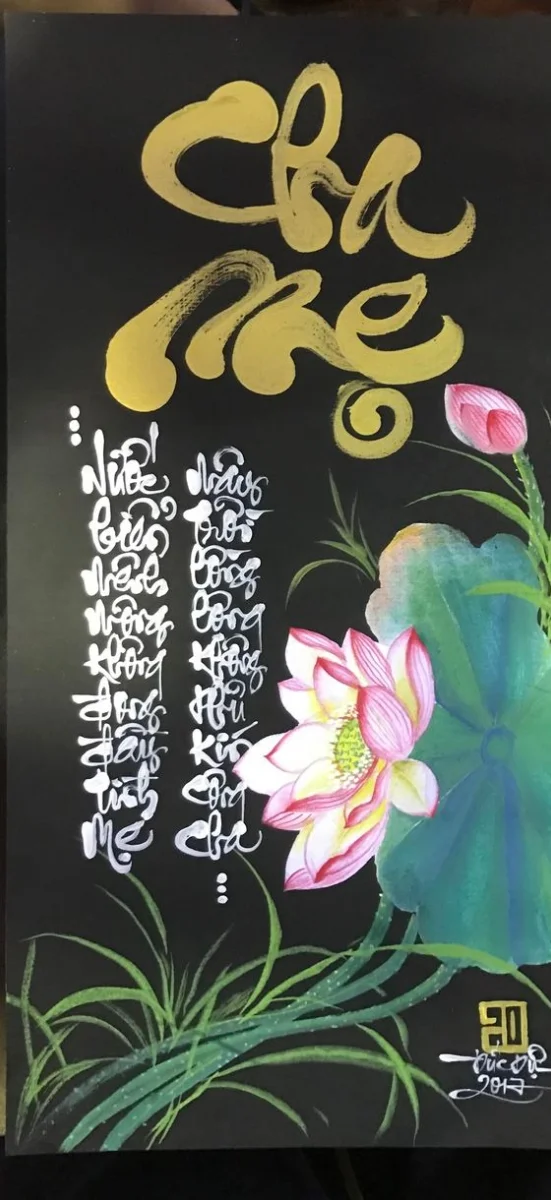 Cha
Mẹ
... Nước biển mênh mông không đong đầy tình Mẹ
Mây trời lồng lộng không phủ kín công Cha ...
Đức
2017